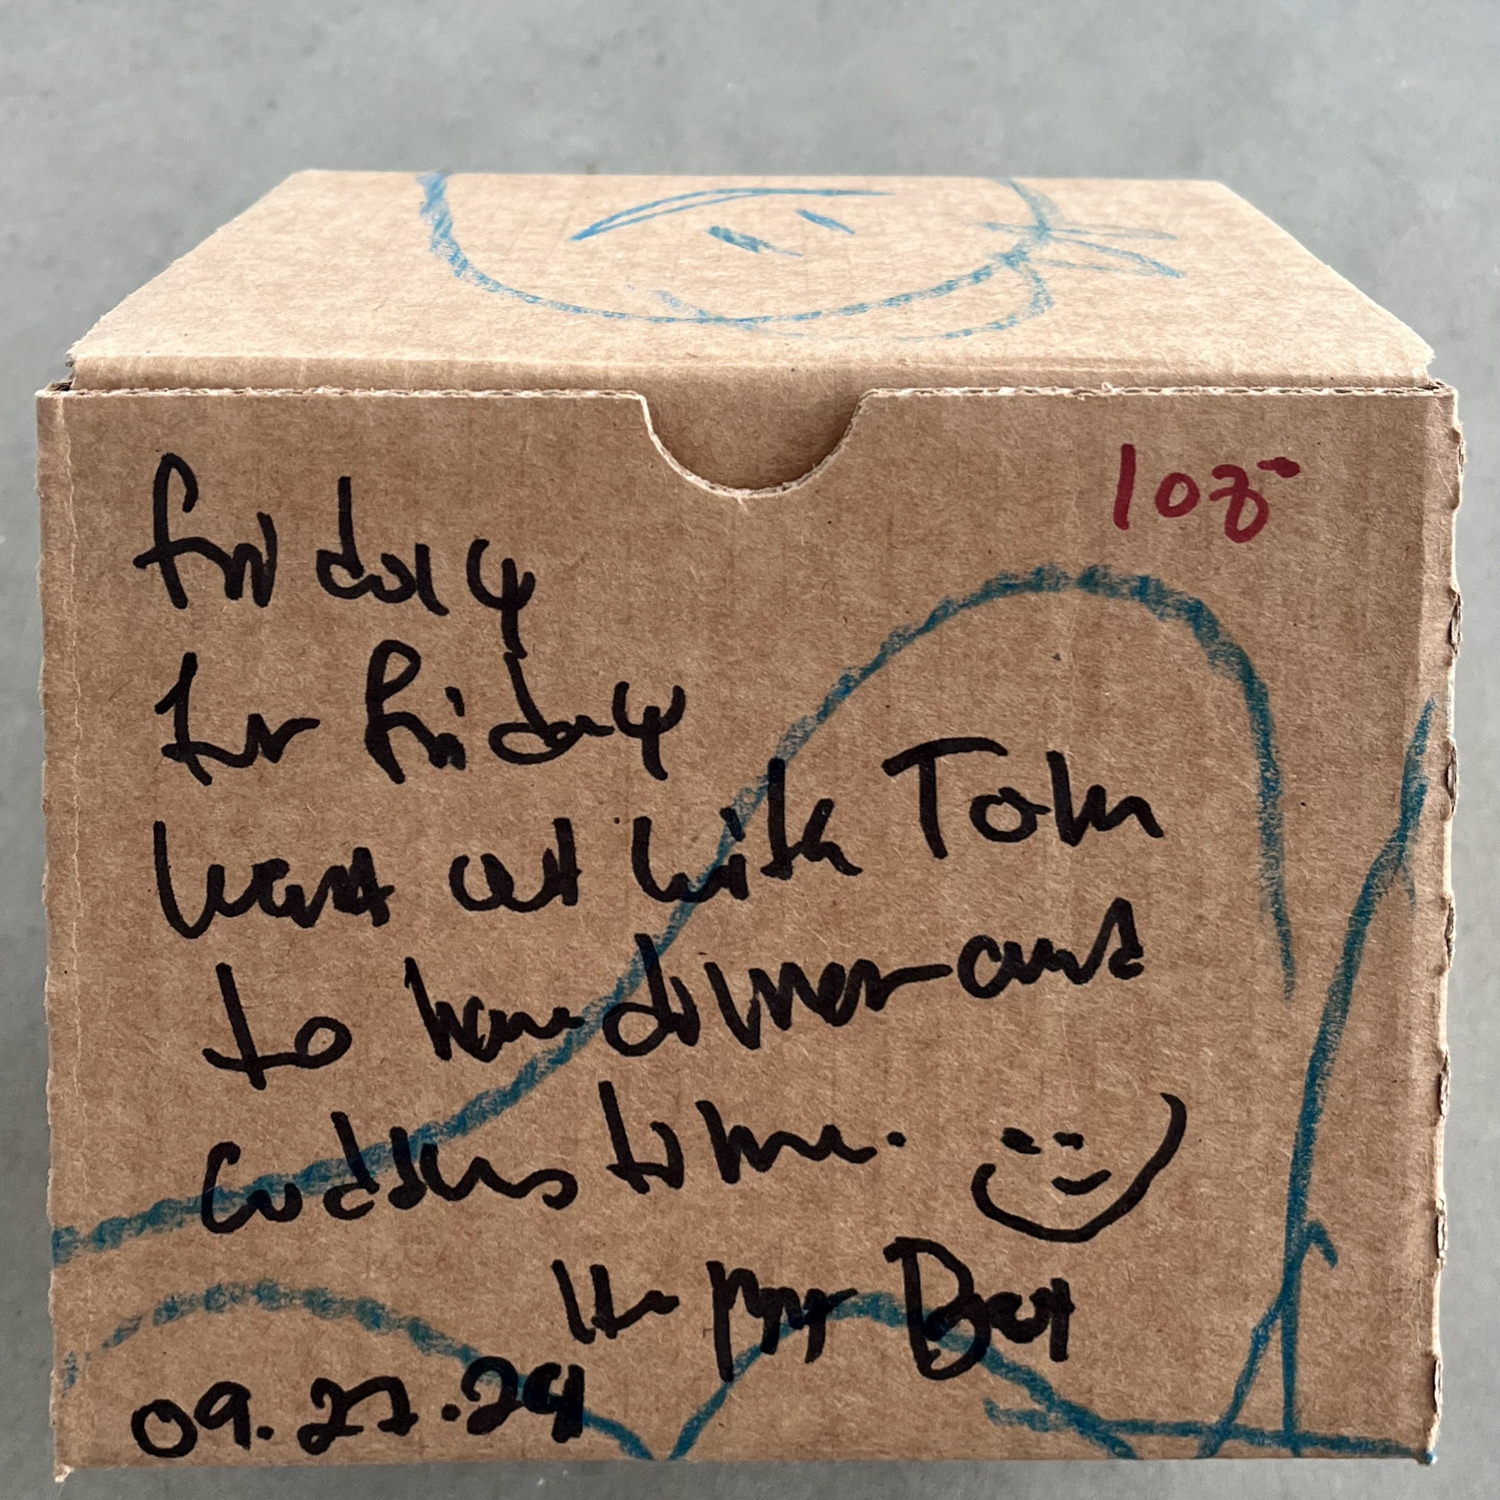 108
friday
for friday
went out with Tom
to have dinner and
cuddles time.
Happy Box
09.27.24